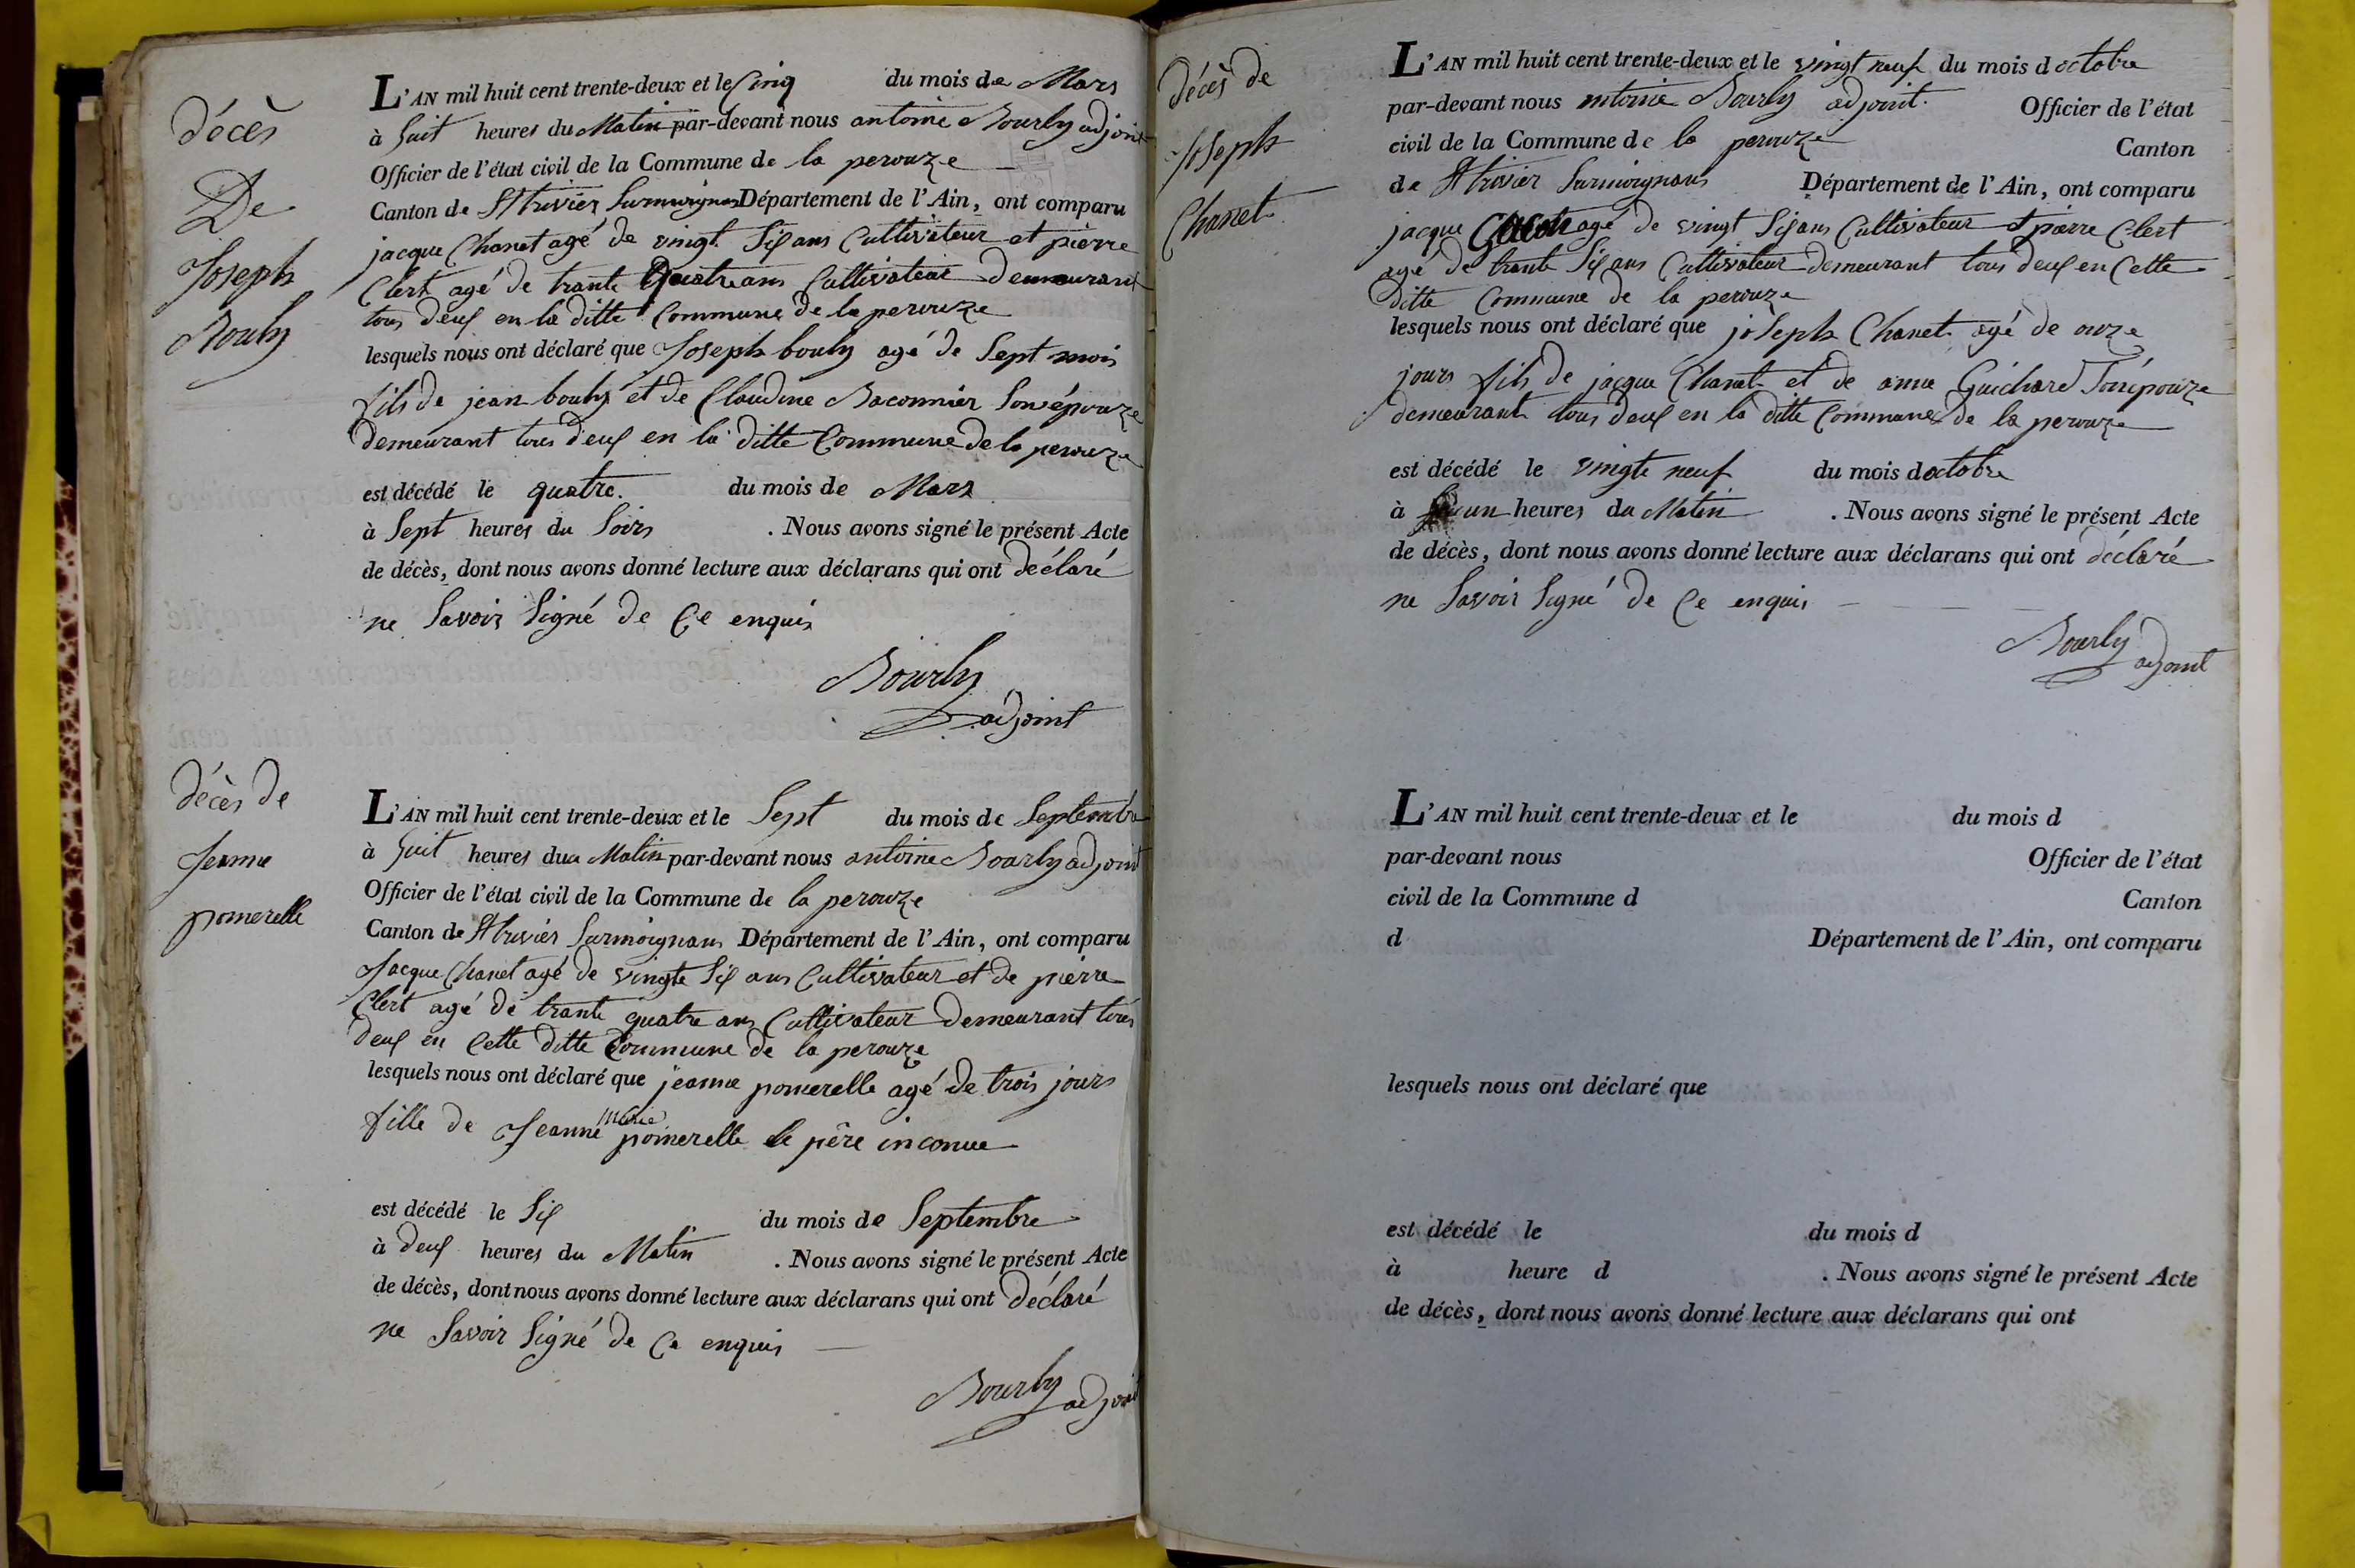 décès
De
Joseph
Bouly
L'AN mil huit cent trente-deux et le Cinq du mois de Mars
à huit heures du Matin par-devant nous antoine Bourly adjoint
Officier de l'état civil de la Commune de la perouze
Canton de St trivier Surmoignans Département de l'Ain, ont comparu
jacque Chanet agé de vingt Six ans Cultivateur et pierre
Clert agé de trante Quatre ans Cultivateur Demeurant
tous deux en la ditte Commune de la perouze
lesquels nous ont déclaré que Joseph bouly agé de Sept mois
fils de jean bouly et de Claudine Baconnier Son épouze
Demeurant tous deux en la ditte Commune de la perouze
est décédé le quatre. du mois de Mars
à Sept heures du Soirs . Nous avons signé le présent Acte
de décès, dont nous avons donné lecture aux déclarans qui ont déclaré
ne Savoir Signé de Ce enquis
Bourly
adjoint
décès de
Jeanne
pomerelle
L'AN mil huit cent trente-deux et le Sept du mois de Septembre
à huit heures du Matin par-devant nous antoine Bourly adjoint
Officier de l'état civil de la Commune de la perouze
Canton de St trivier Surmoignans Département de l'Ain, ont comparu
Jacque Chanet agé de vingte Six ans Cultivateur et de pierre
Clert agé de trante quatre ans Cultivateur Demeurant tous
deux en Cette ditte Commune de la perouze
lesquels nous ont déclaré que jeanne pomerelle agé de trois jours
fille de Jeanne Marie pomerelle le père inconue
est décédé le Six du mois de Septembre
à deux heures du Matin . Nous avons signé le présent Acte
de décès, dont nous avons donné lecture aux déclarans qui ont déclaré
ne Savoir Signé de Ce enquis
Bourly adjoint
décès de
Joseph
Chanet
L'AN mil huit cent trente-deux et le vingt neuf du mois d octobre
par-devant nous antoine Bourly adjoint. Officier de l'état
civil de la Commune de la perouze Canton
de St trivier Surmoignans Département de l'Ain, ont comparu
jacque agé de vingt Six ans Cultivateur et pierre Clert
agé de trante Six ans Cultivateur demeurant tous deux en Cette
ditte Commune de la perouze
lesquels nous ont déclaré que joseph Chanet agé de onze
jours fils de jacque Chanet et de anne Guichard Son épouze
demeurant tous deux en la ditte Commune de la perouze
est décédé le vingte neuf du mois d octobre
à un heures du Matin . Nous avons signé le présent Acte
de décès, dont nous avons donné lecture aux déclarans qui ont déclaré
ne Savoir Signé de Ce enquis
Bourly adjoint
L'AN mil huit cent trente-deux et le du mois d
par-devant nous Officier de l'état
civil de la Commune d Canton
d Département de l'Ain, ont comparu
lesquels nous ont déclaré que
est décédé le du mois d
à heure d . Nous avons signé le présent Acte
de décès, dont nous avons donné lecture aux déclarans qui ont